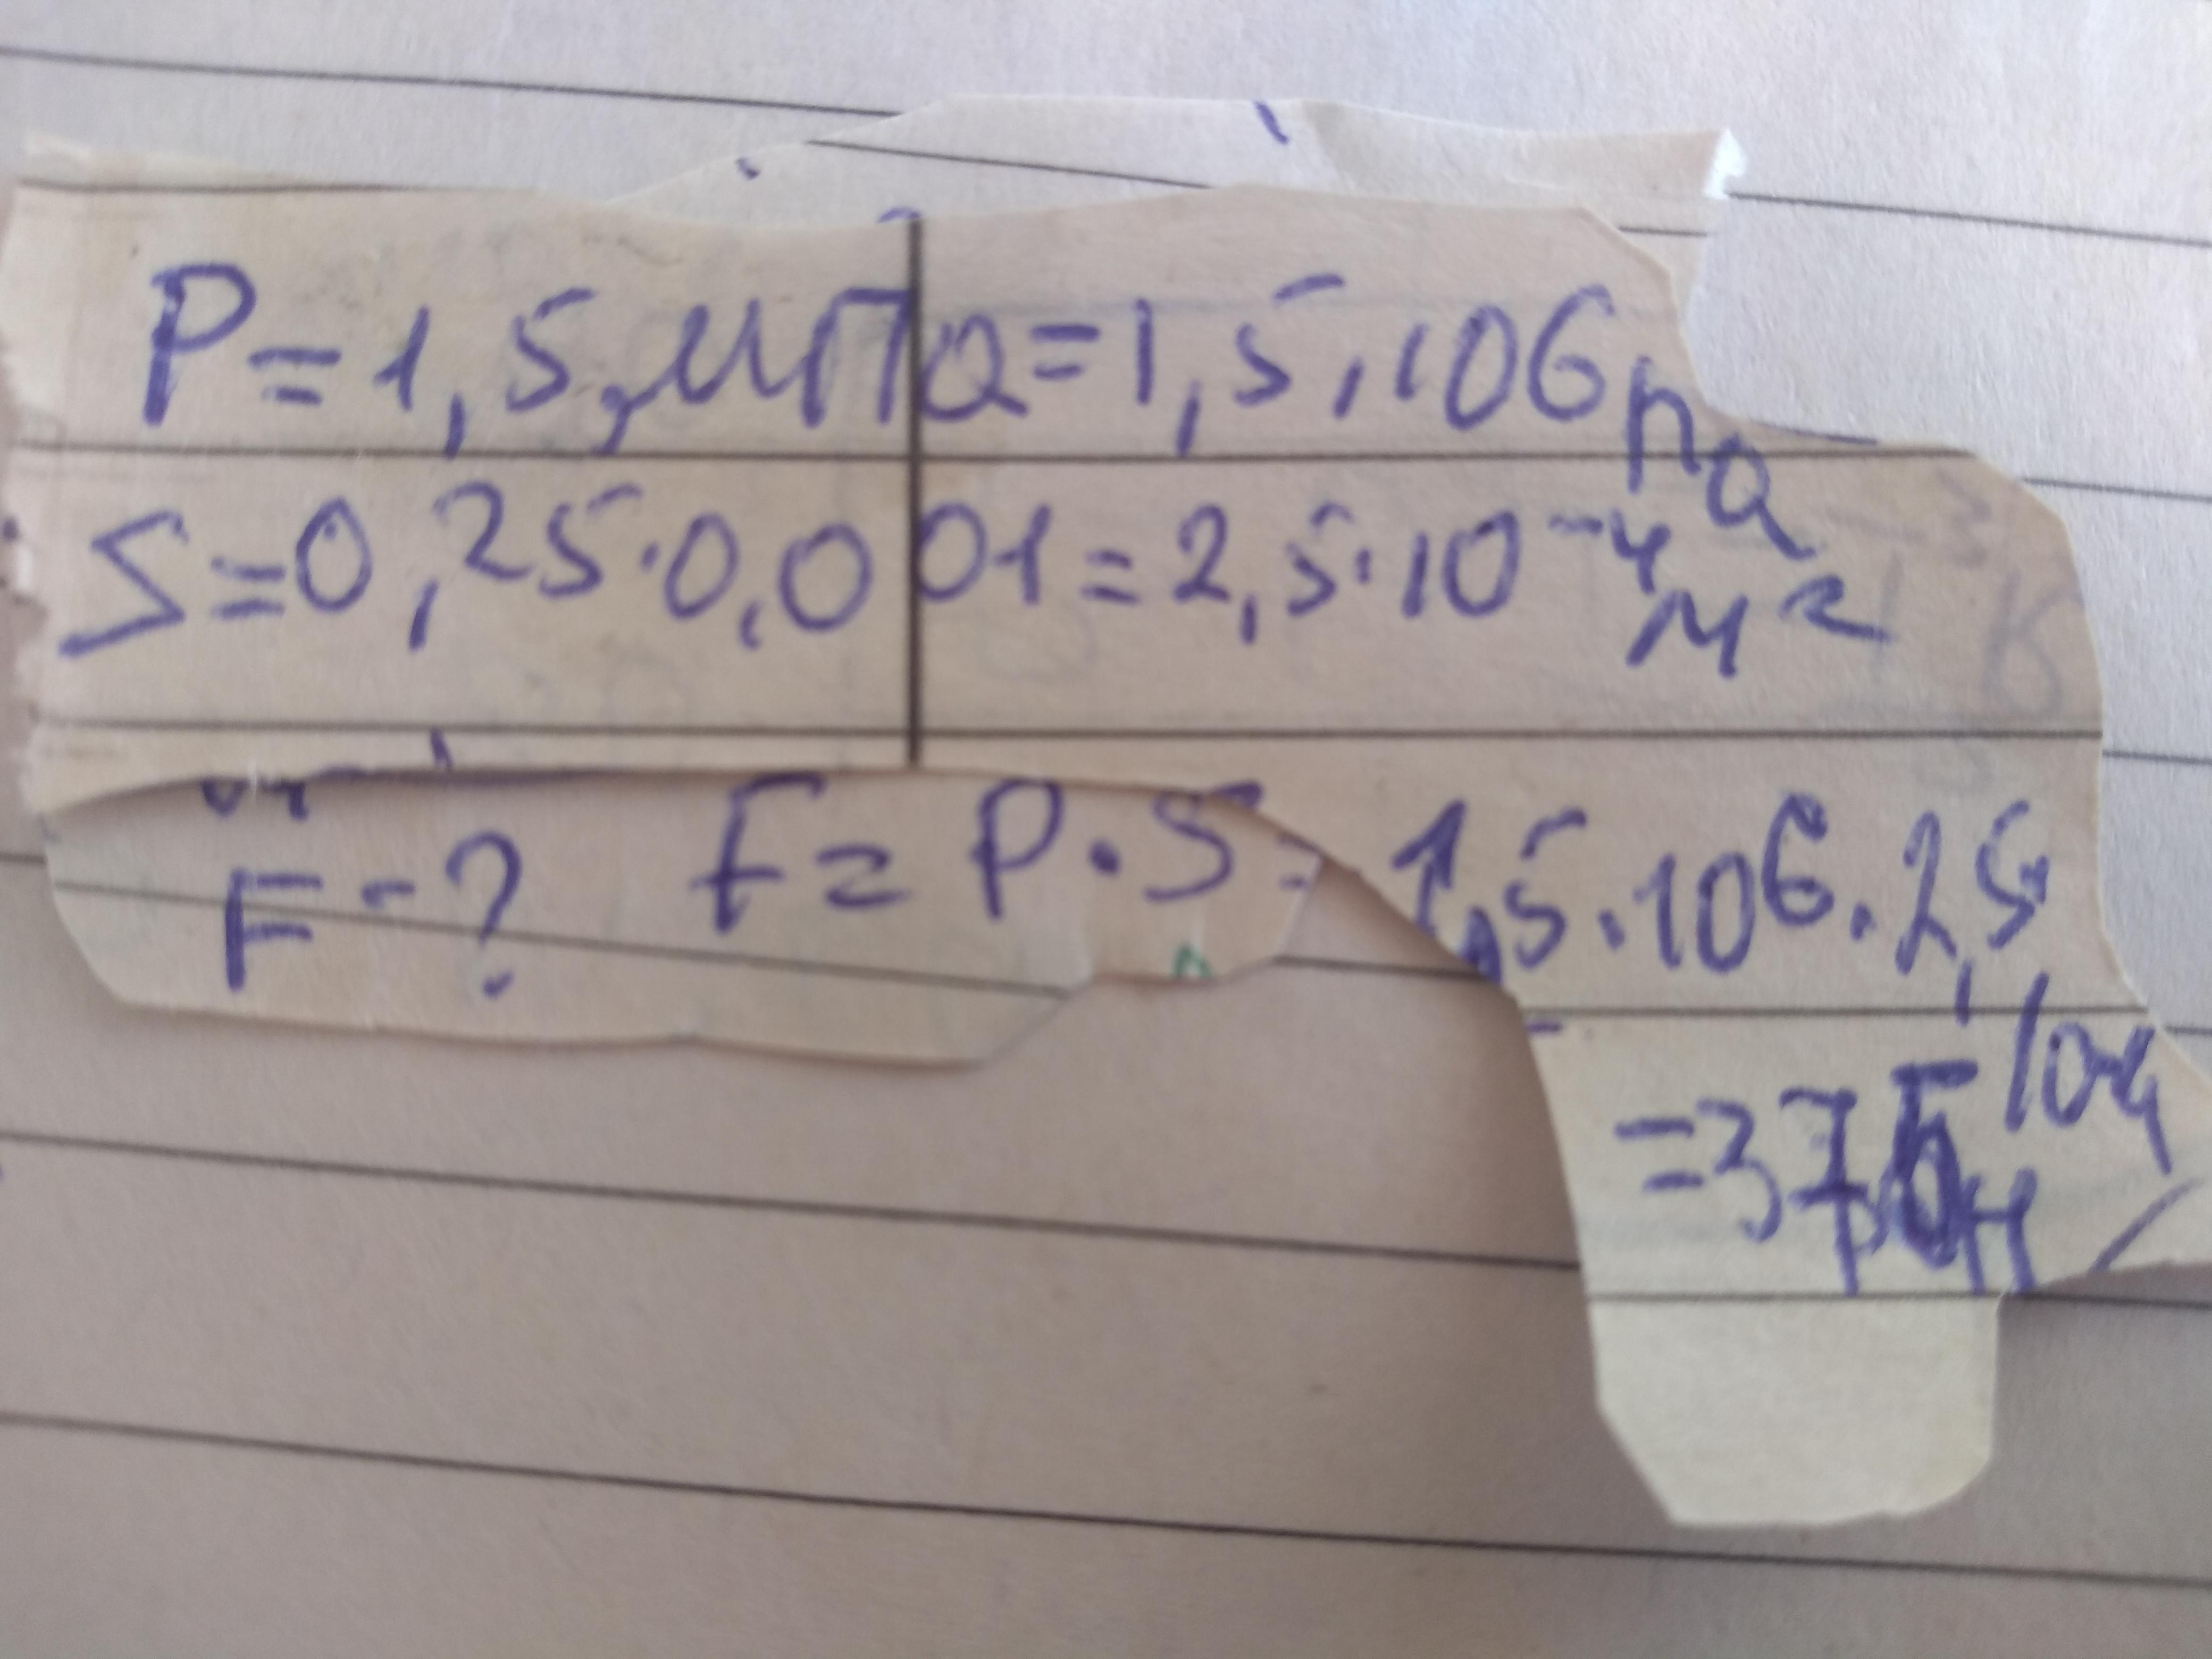 P=1,5 МПа=1,5·10⁶ Па
S=0,25·0,001=2,5·10⁻⁴ м²
F-? F=P·S=1,5·10⁶·2,5
10-4
=375 Н